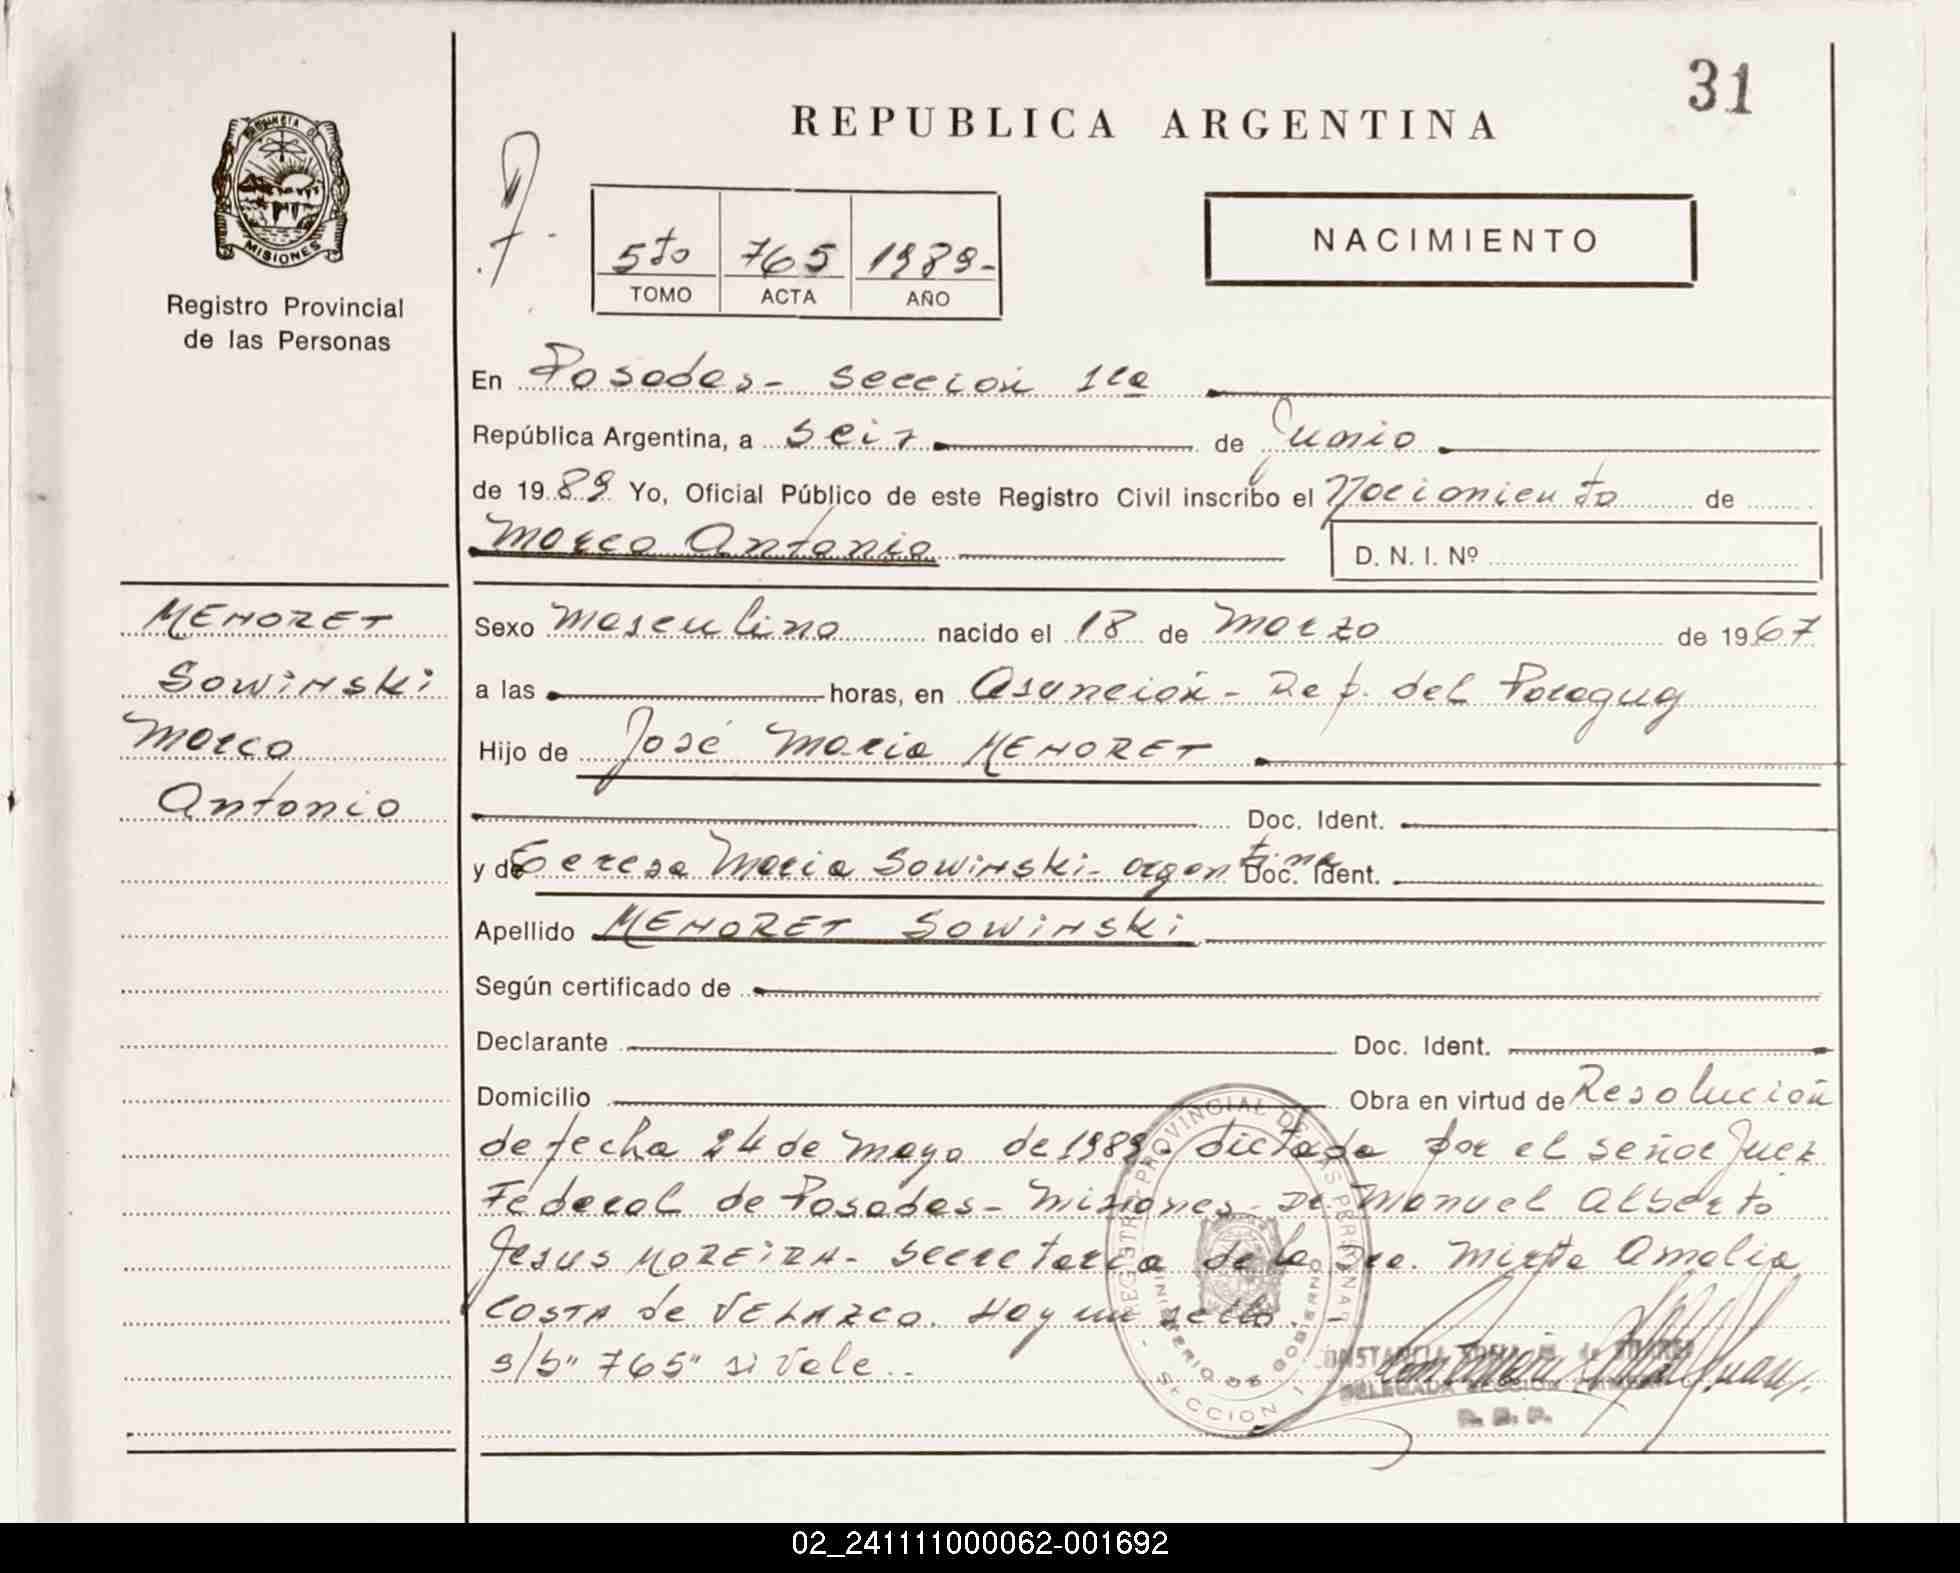 31
REPUBLICA ARGENTINA
PROVINCIA DE
MISIONES
Registro Provincial
de las Personas
5to 765 1989-
TOMO ACTA AÑO
NACIMIENTO
En Posadas- Sección 1ra
República Argentina, a seis de Junio
de 1989 Yo, Oficial Público de este Registro Civil inscribo el Nacimiento de
Marco Antonio
D. N. I. Nº
MENORET
Sowinski
Marco
Antonio
Sexo Masculino nacido el 18 de Marzo de 1967
a las horas, en Asunción- Rep. del Paraguay
Hijo de José Maria MENORET
Doc. Ident.
y de Teresa Maria Sowinski- argentina Doc. Ident.
Apellido MENORET Sowinski
Según certificado de
Declarante Doc. Ident.
Domicilio Obra en virtud de Resolución
de fecha 24 de Mayo de 1989- dictada por el señor Juez
Federal de Posadas- Misiones- Dr Manuel Alberto
Jesus MOREIRA- Secretaria de la Dra. Mirta Amalia
COSTA de VELAZCO. Hay un sello.
s/b" 765" si Vale..
REGISTRO PROVINCIAL DE LAS PERSONAS
MINISTERIO DE GOBIERNO
SECCION 1
DELEGADA SECCION
R. P. P.
02_241111000062-001692